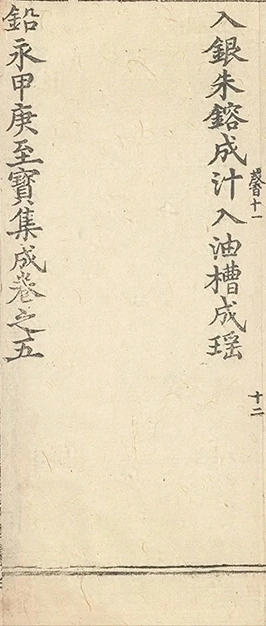 入銀朱鎔成汁入油槽成瑶
馨十一
十二
鉛永甲庚至寶集成卷之五